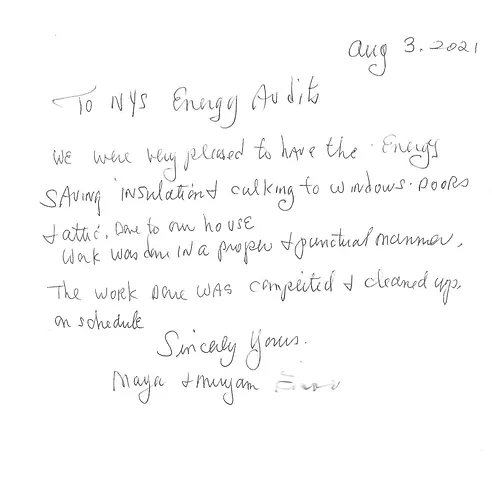 Aug 3. 2021
To NYS Energy Audits
WE were very pleased to HAVE the Energy
SAving insulation & calking to windows. DOORS
& attic. Done to our house
Work was done IN a proper & punctual manner.
The work Done WAS completed & cleaned up.
on schedule
Sincerly Yours.
Maya & Miryam